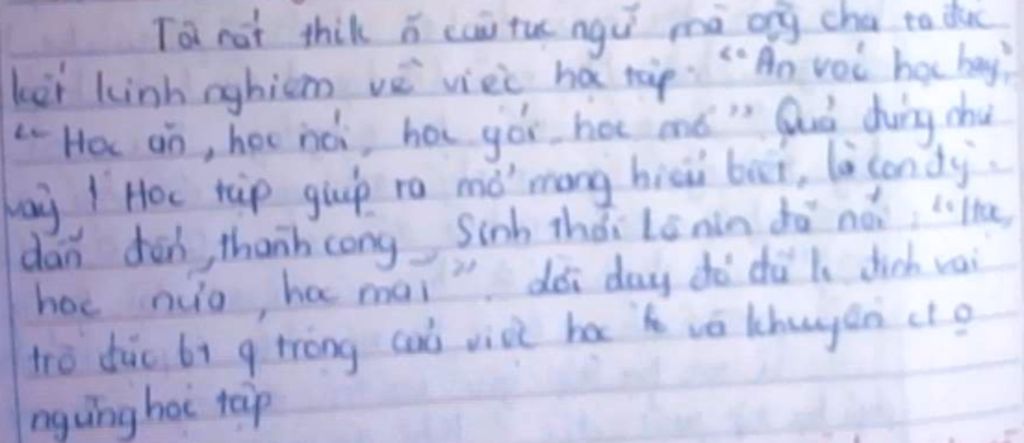 Tôi rất thik ~ câu tục ngữ mà ông cha ta đúc
kết kinh nghiệm về việc học tập. "Ăn vóc học hay",
"Học ăn, học nói, học gói, học mở" Quả đúng như
vậy! Học tập giúp ta mở mang hiểu biết, là con đg
dẫn đến thành công. Sinh thời Lênin đã nói: "Học,
học nữa, học mãi". đã vai
trò đặc bt q trọng của việc học và khuyên ct o
ngừng học tập